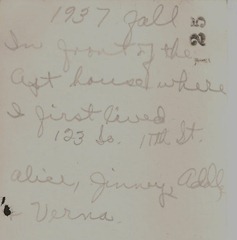 1937 Fall
In front of the
Apt house where
I first lived
123 So. 11th St.
Alice, Jinney, Add
& Verna.
25